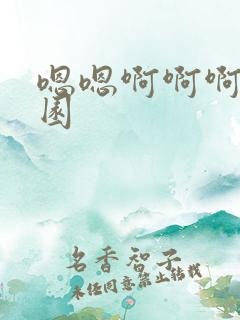 嗯嗯啊啊啊
園
名香智子
未经同意禁止转载